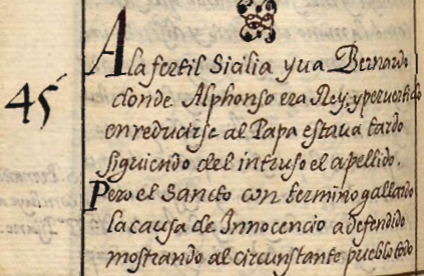 45
A la fertil Sicilia yua Bernardo
donde Alphonso era Rey, y peruertido
en reducirse al Papa estaua tardo
siguiendo del intruso el apellido.
Pero el Sancto con termino gallardo
la causa de Innocencio a defendido
mostrando al circunstante pueblo todo